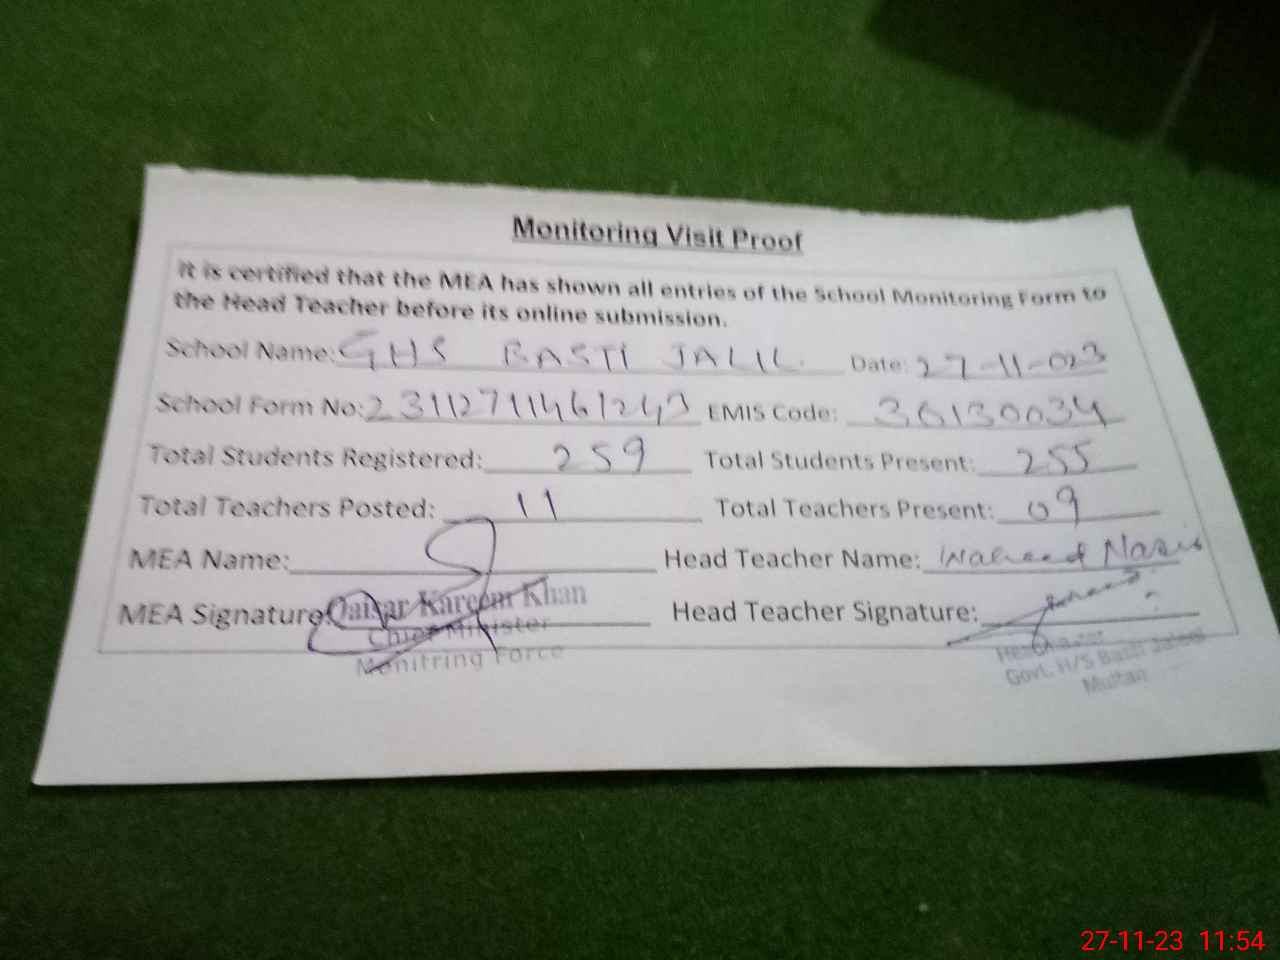 Monitoring Visit Proof
It is certified that the MEA has shown all entries of the School Monitoring Form to
the Head Teacher before its online submission.
School Name: GHS BASTI JALIL Date: 27-11-023
School Form No: 23112711461243 EMIS Code: 36130034
Total Students Registered: 259 Total Students Present: 255
Total Teachers Posted: 11 Total Teachers Present: 09
MEA Name: Head Teacher Name: Waheed
MEA Signature: Qaisar Kareem Khan Head Teacher Signature:
Chief Minister
Monitring Force
Govt. H/S Basti Jaleel
Multan
27-11-23 11:54